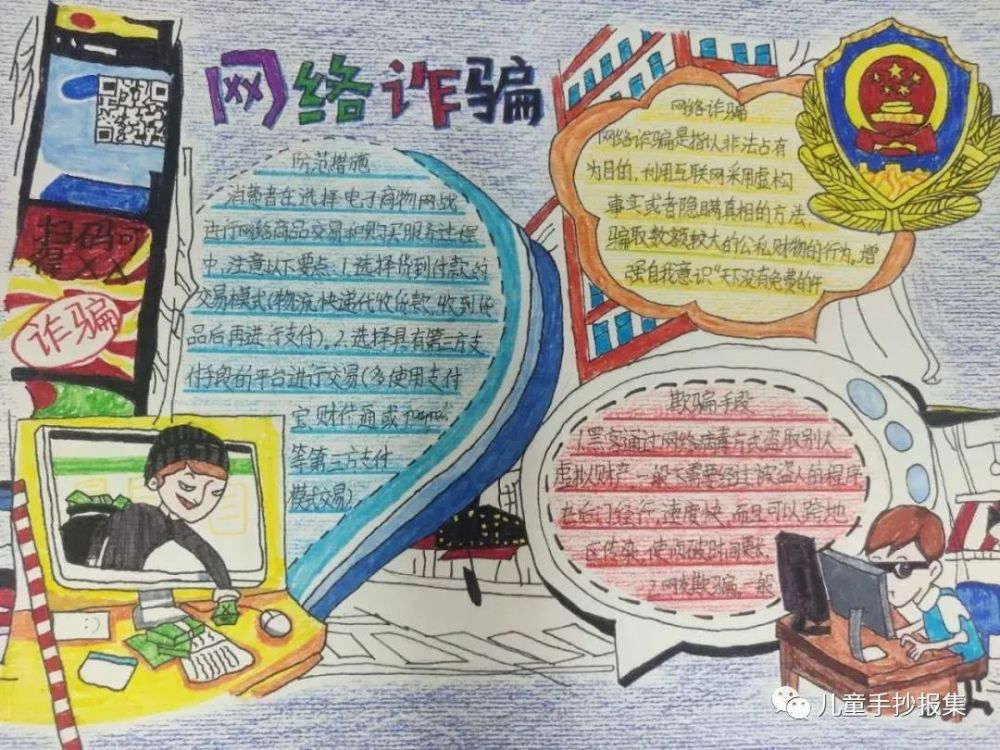 网络诈骗
扫码可
得XX
诈骗
防范措施
消费者在选择电子商物网战
进行网络商品交易和购买服务过程
中,注意以下要点:1.选择货到付款的
交易模式(物流快递代收货款,收到货
品后再进行支付)。2.选择具有第三方支
付手段的平台进行交易(多使用支付
宝财付通或
等第三方支付
模式交易)
网络诈骗
网络诈骗是指以非法占有
为目的,利用互联网采用虚构
事实或者隐瞒真相的方法,
骗取数额较大的公私财物的行为,增
强自我意识“天下没有免费的午
欺骗手段
1.黑客通过网络病毒方式盗取别人
虚拟财产一般不需要经过被盗人的程序
在后门经行,速度快,而且可以跨地
区传染,使侦破时间更长
2.网友欺骗,一般
:)
儿童手抄报集